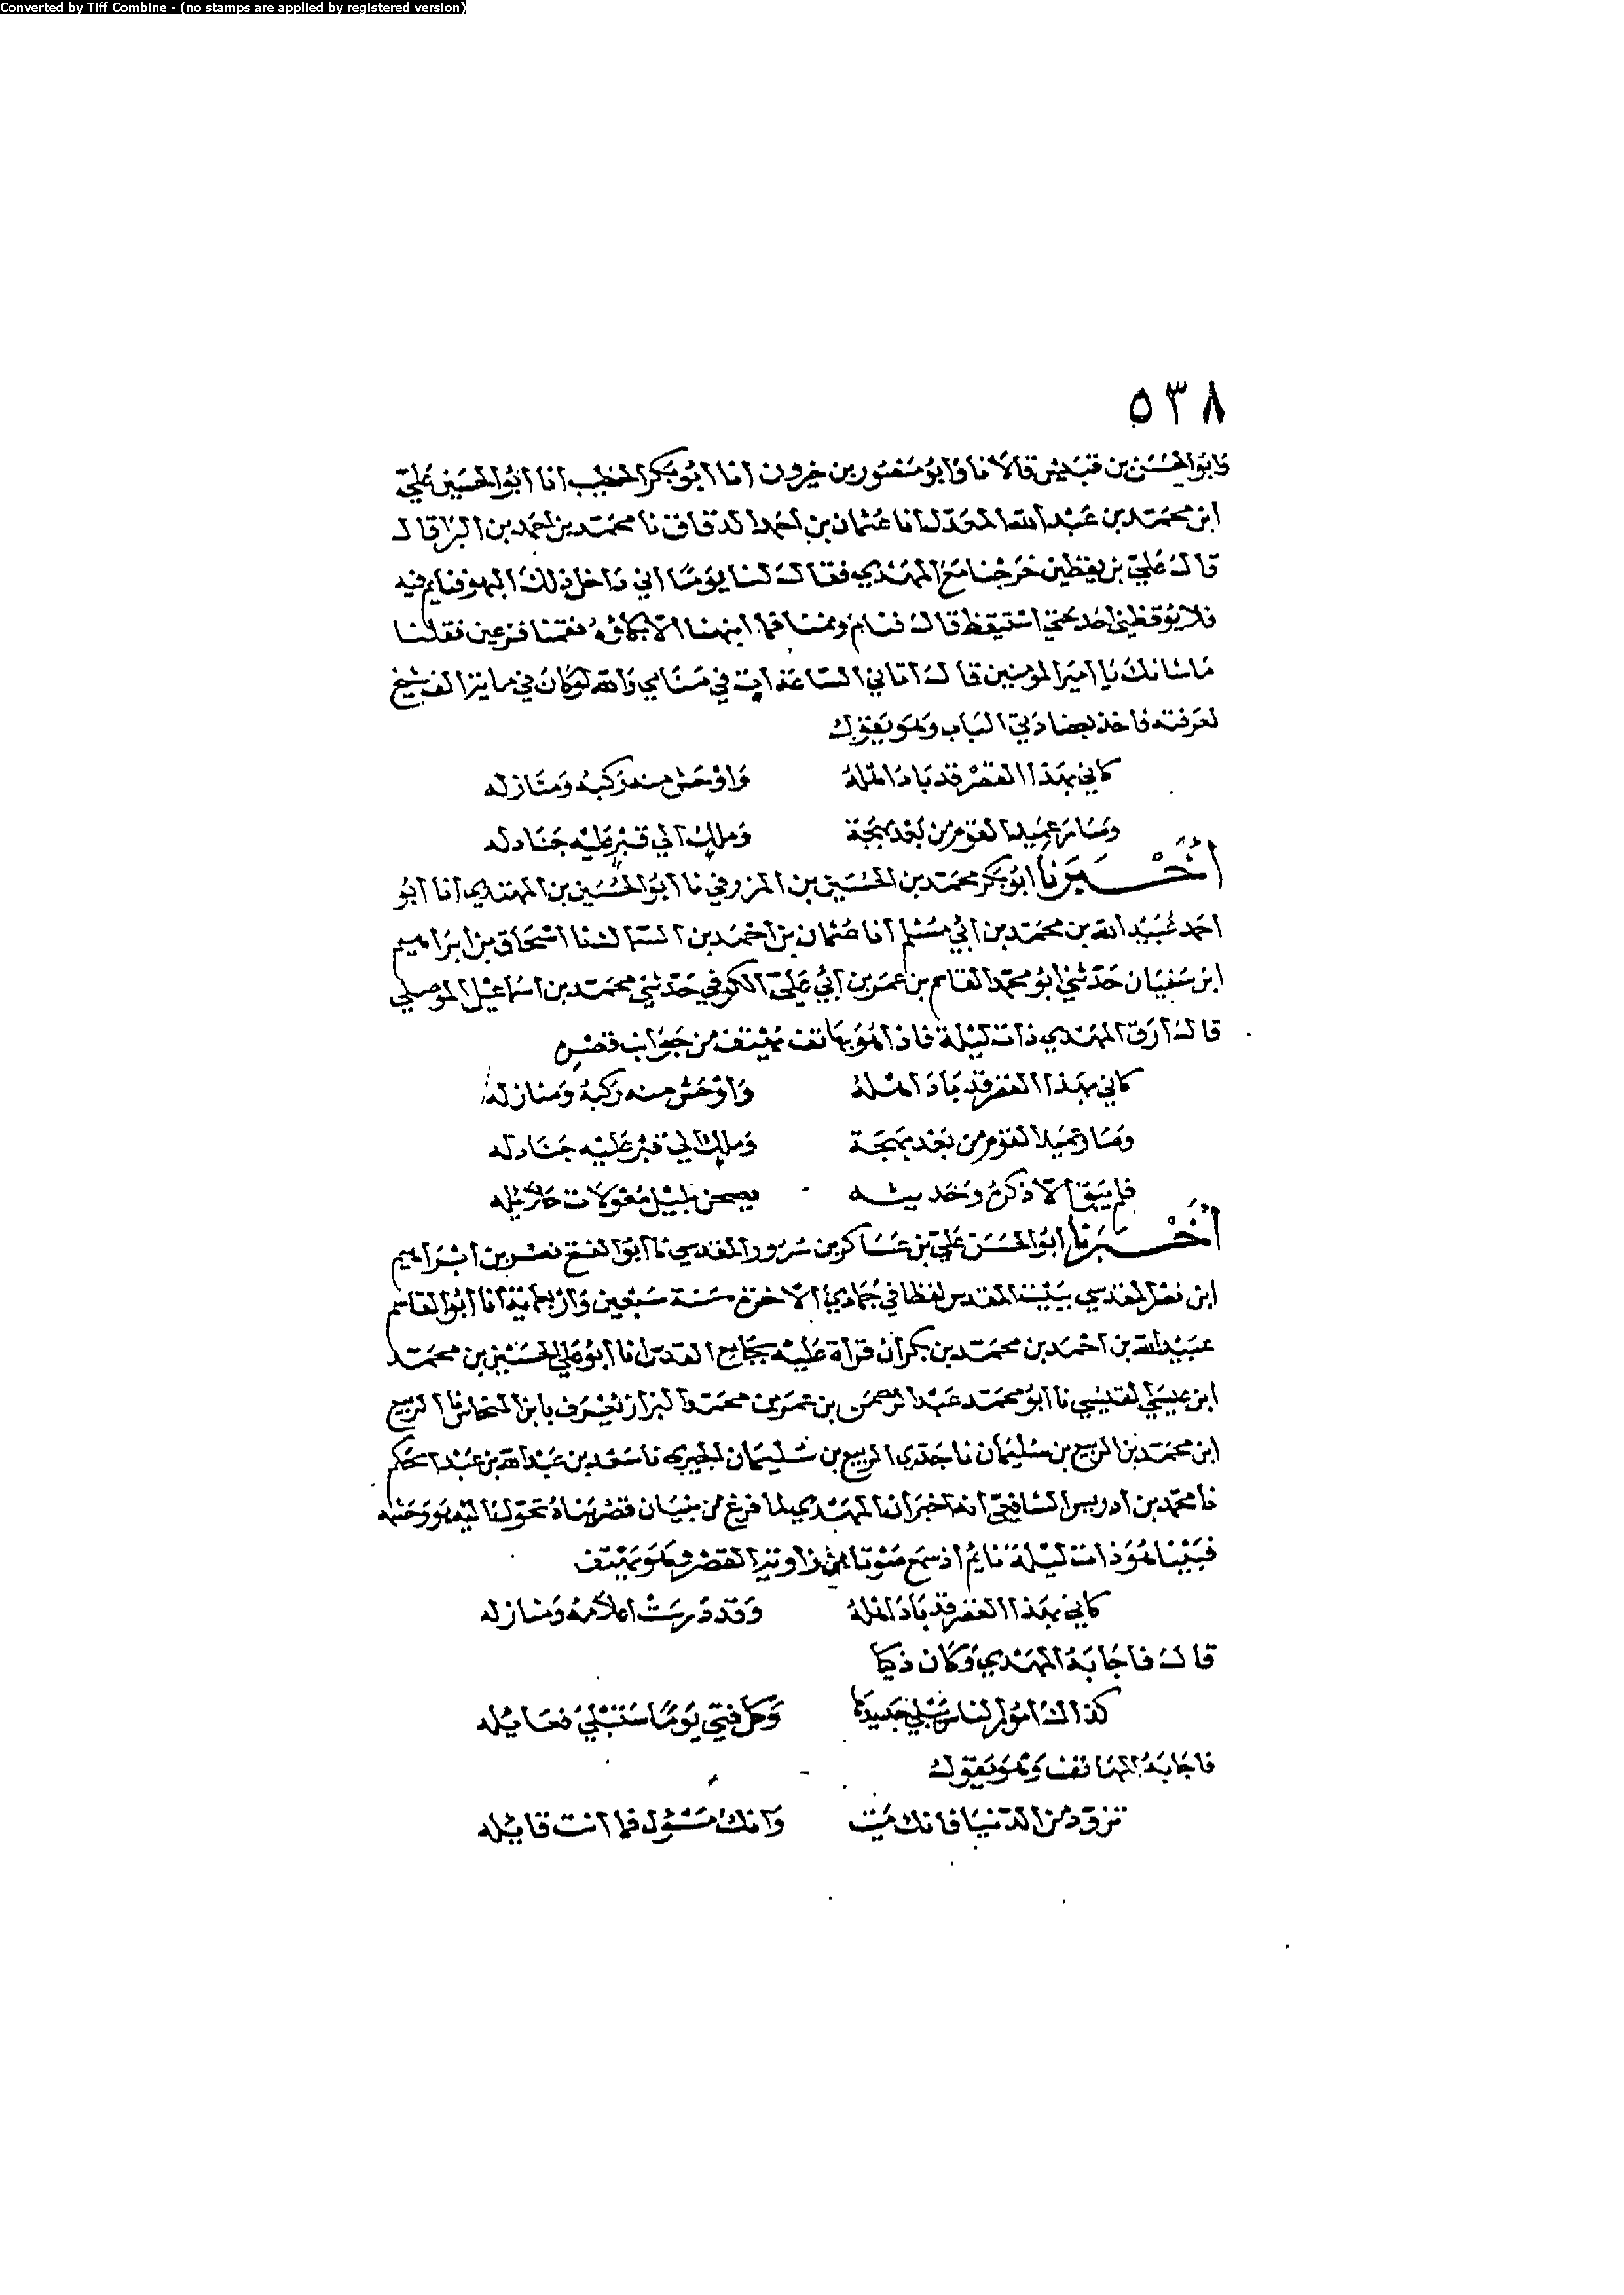 Converted by Tiff Combine - (no stamps are applied by registered version)
٥٣٨
وابو الحسن بن قبيس قالا نا وابو منصور بن خيرون انا ابو بكر الخطيب انا ابو الحسين علي
ابن محمد بن عبد الله المعدل انا عثمان بن احمد الدقاق نا محمد بن احمد بن البرا قال
قال علي بن يقطين خرجنا مع المهدي فقال لنا يوما اني داخل ذلك البهو فنايم فيه
فلا يوقظني احد حتى استيقظ قال فنام ونمنا فما انبهنا الا بكاؤه فقمنا فزعين فقلنا
ما شانك يا امير المومنين قال اتاني الساعة ات في منامي والله لو كان في ماية الف شيخ
لعرفته فاخذ بعضادتي الباب وهو يقول
كاني بهذا القصر قد باد اهله واوحش منه ركبه ومنازله
وصار عميد القوم من بعد بهجة وملك الي قبر عليه جنادله
اخبرنا ابو بكر محمد بن الحسين بن المزرفي نا ابو الحسين بن المهتدي انا ابو
احمد عبيد الله بن محمد بن ابي مسلم انا عثمان بن احمد بن السماك نا اسحاق بن ابراهيم
ابن سفيان حدثني ابو محمد القاسم بن عمر بن ابي علي الكوفي حدثني محمد بن اسماعيل الموصلي
قال ارق المهدي ذات ليلة فاذا هو بهاتف يهتف من جوانب قصره
كاني بهذا القصر قد باد اهله واوحش منه ركبه ومنازله
وصار عميد القوم من بعد بهجة وملك الي قبر عليه جنادله
فلم يبق الا ذكره وحديثه يصحن بليل معولات حلائله
اخبرنا ابو الحسن علي بن عساكر بن سرور المقدسي نا ابو الفتح نصر بن ابراهيم
ابن نصر المقدسي ببيت المقدس لفظا في جمادي الاخرة سنة سبعين واربعماية انا ابو القاسم
عبيد الله بن احمد بن محمد بن بكران قراة عليه بجامع القدس انا ابو علي الحسين بن محمد
ابن عيسي القيسي نا ابو محمد عبد الرحمن بن عمر بن محمد البزاز يعرف بابن النحاس نا الربيع
ابن محمد بن الربيع بن سليمان نا جدي الربيع بن سليمان الجيزي نا سعد بن عبد الله بن عبد الحكم
نا محمد بن ادريس الشافعي انه اخبر ان المهدي لما فرغ من بنيان قصر بناه تحول اليه هو وحشمه
فبينا هو ذات ليلة نايم اذ سمع صوتا من زاوية القصر وهو يهتف
كاني بهذا القصر قد باد اهله وقد درست اعلامه ومنازله
قال فاجابه المهدي وكان ذكيا
كذاك امور الناس يبلي جديدها وكل فتي يوما ستبلي فعايله
فاجابه الهاتف وهو يقول
تزود من الدنيا فانك ميت وانك مسؤل فما انت قايله